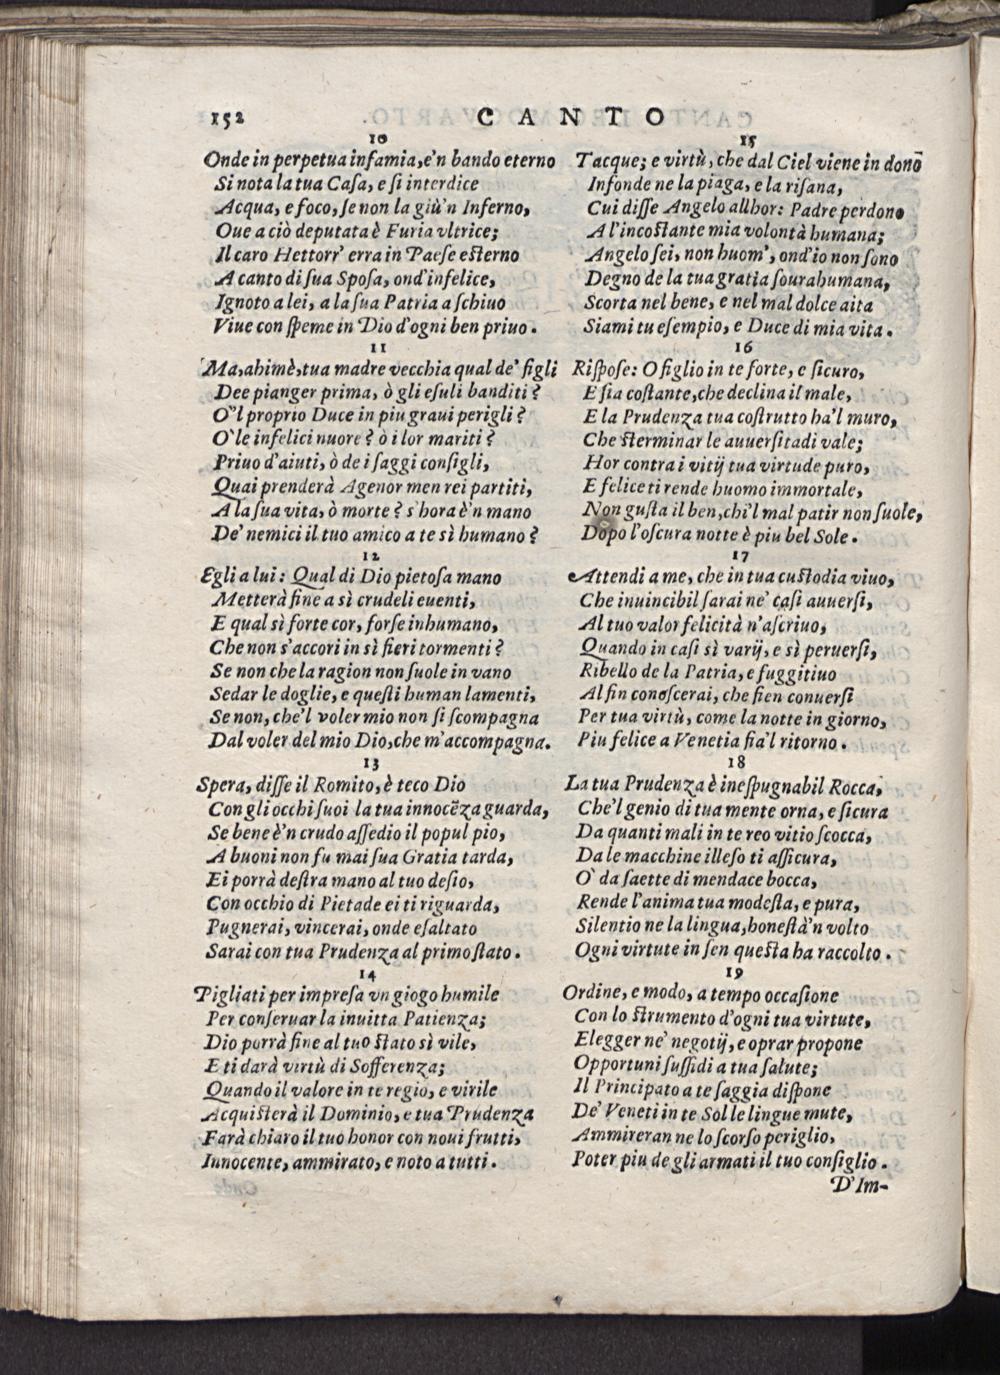 152 CANTO
10
Onde in perpetua infamia, e'n bando eterno
Si nota la tua Casa, e si interdice
Acqua, e foco, se non la giù'n Inferno,
Oue a ciò deputata è Furia vltrice;
Il caro Hettorr' erra in Paese esterno
A canto di sua Sposa, ond'infelice,
Ignoto a lei, a la sua Patria a schiuo
Viue con speme in Dio d'ogni ben priuo.
11
Ma, ahimè, tua madre vecchia qual de' figli
Dee pianger prima, ò gli esuli banditi?
O''l proprio Duce in piu graui perigli?
O' le infelici nuore? ò i lor mariti?
Priuo d'aiuti, ò de i saggi consigli,
Quai prenderà Agenor men rei partiti,
A la sua vita, ò morte? s'hora è'n mano
De' nemici il tuo amico a te sì humano?
12
Egli a lui: Qual di Dio pietosa mano
Metterà fine a sì crudeli euenti,
E qual sì forte cor, forse inhumano,
Che non s'accori in sì fieri tormenti?
Se non che la ragion non suole in vano
Sedar le doglie, e questi human lamenti,
Se non, che'l voler mio non si scompagna
Dal voler del mio Dio, che m'accompagna.
13
Spera, disse il Romito, è teco Dio
Con gli occhi suoi la tua innocēza guarda,
Se bene è'n crudo assedio il popul pio,
A buoni non fu mai sua Gratia tarda,
Ei porrà destra mano al tuo desio,
Con occhio di Pietade ei ti riguarda,
Pugnerai, vincerai, onde esaltato
Sarai con tua Prudenza al primo stato.
14
Pigliati per impresa vn giogo humile
Per conseruar la inuitta Patienza;
Dio porrà fine al tuo stato sì vile,
E ti darà virtù di Sofferenza;
Quando il valore in te regio, e virile
Acquisterà il Dominio, e tua Prudenza
Farà chiaro il tuo honor con noui frutti,
Innocente, ammirato, e noto a tutti.
15
Tacque; e virtù, che dal Ciel viene in donō
Infonde ne la piaga, e la risana,
Cui disse Angelo allhor: Padre perdono
A l'incostante mia volontà humana;
Angelo sei, non huom', ond'io non sono
Degno de la tua gratia sourahumana,
Scorta nel bene, e nel mal dolce aita
Siami tu esempio, e Duce di mia vita.
16
Rispose: O figlio in te forte, e sicuro,
E sia costante, che declina il male,
E la Prudenza tua costrutto ha'l muro,
Che sterminar le auuersitadi vale;
Hor contra i vitij tua virtude puro,
E felice ti rende huomo immortale,
Non gusta il ben, chi'l mal patir non suole,
Dopo l'oscura notte è piu bel Sole.
17
Attendi a me, che in tua custodia viuo,
Che inuincibil sarai ne' casi auuersi,
Al tuo valor felicità n'ascriuo,
Quando in casi sì varij, e sì peruersi,
Ribello de la Patria, e fuggitiuo
Al fin conoscerai, che sien conuersi
Per tua virtù, come la notte in giorno,
Piu felice a Venetia fia'l ritorno.
18
La tua Prudenza è inespugnabil Rocca,
Che'l genio di tua mente orna, e sicura
Da quanti mali in te reo vitio scocca,
Da le macchine illeso ti assicura,
O' da saette di mendace bocca,
Rende l'anima tua modesta, e pura,
Silentio ne la lingua, honestà'n volto
Ogni virtute in sen questa ha raccolto.
19
Ordine, e modo, a tempo occasione
Con lo strumento d'ogni tua virtute,
Elegger ne' negotij, e oprar propone
Opportuni sussidi a tua salute;
Il Principato a te saggia dispone
De' Veneti in te Sol le lingue mute,
Ammireran ne lo scorso periglio,
Poter piu de gli armati il tuo consiglio.
D'Im-